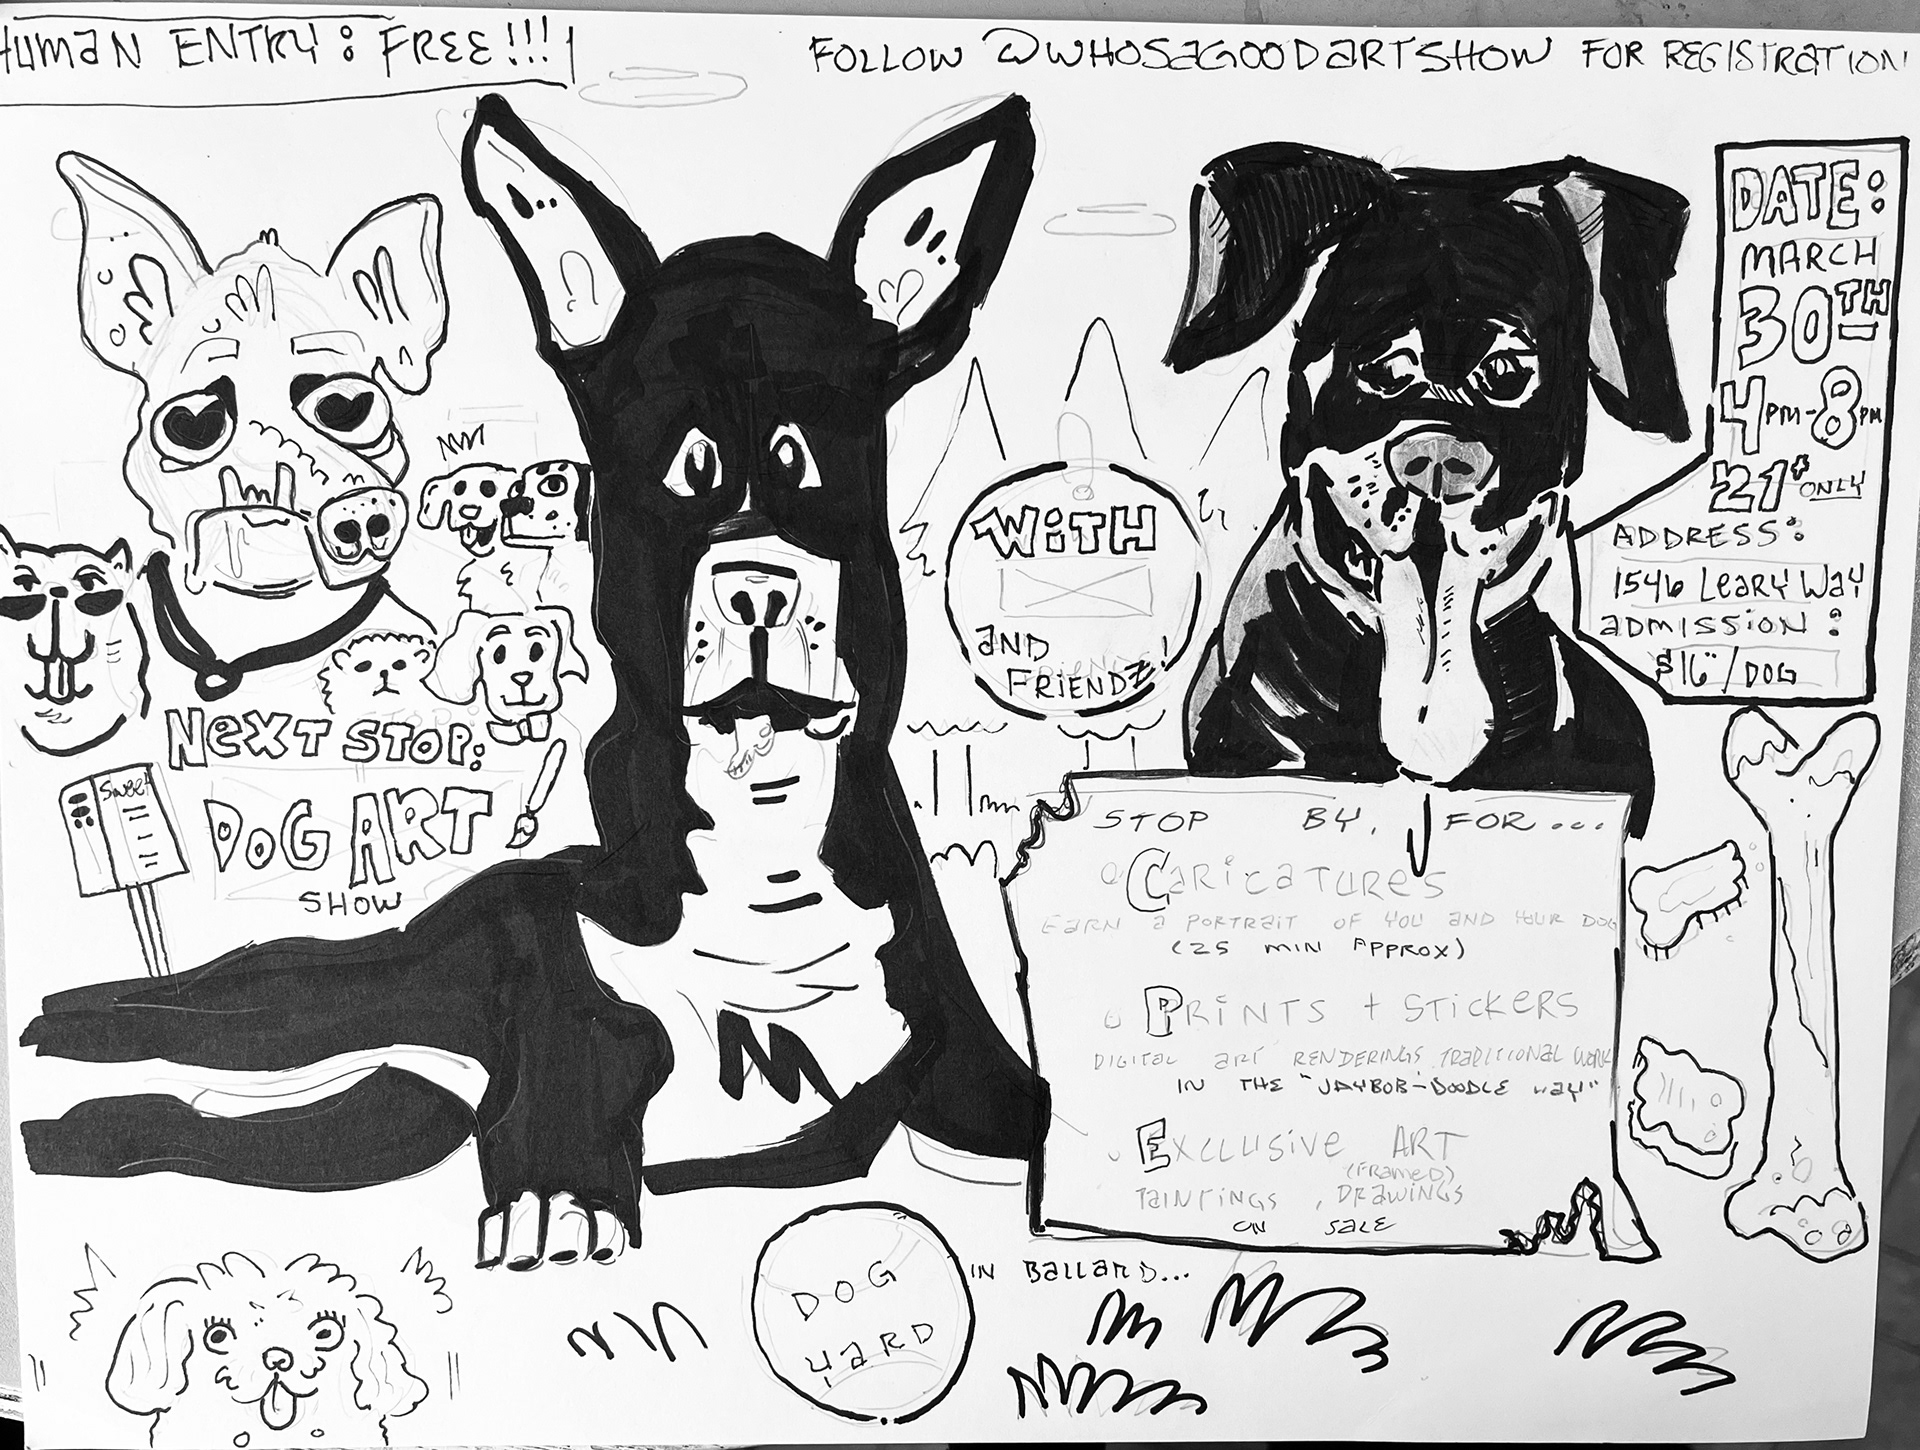 HUMAN ENTRY: FREE!!!
FOLLOW @WHOSAGOODARTSHOW FOR REGISTRATION
DATE:
MARCH
30TH
4PM-8PM
21+ ONLY
ADDRESS:
1546 LEARY WAY
ADMISSION:
$16/DOG
WITH
AND
FRIENDZ!
NEXT STOP:
Sweet
DOG ART
SHOW
STOP BY, FOR...
CARICATURES
EARN A PORTRAIT OF YOU AND YOUR DOG
(25 MIN APPROX)
PRINTS + STICKERS
DIGITAL ART RENDERINGS, TRADITIONAL WORK
IN THE "JAYBOB-DOODLE WAY"
EXCLUSIVE ART
(FRAMED)
PAINTINGS, DRAWINGS
ON SALE
DOG
YARD
IN BALLARD...